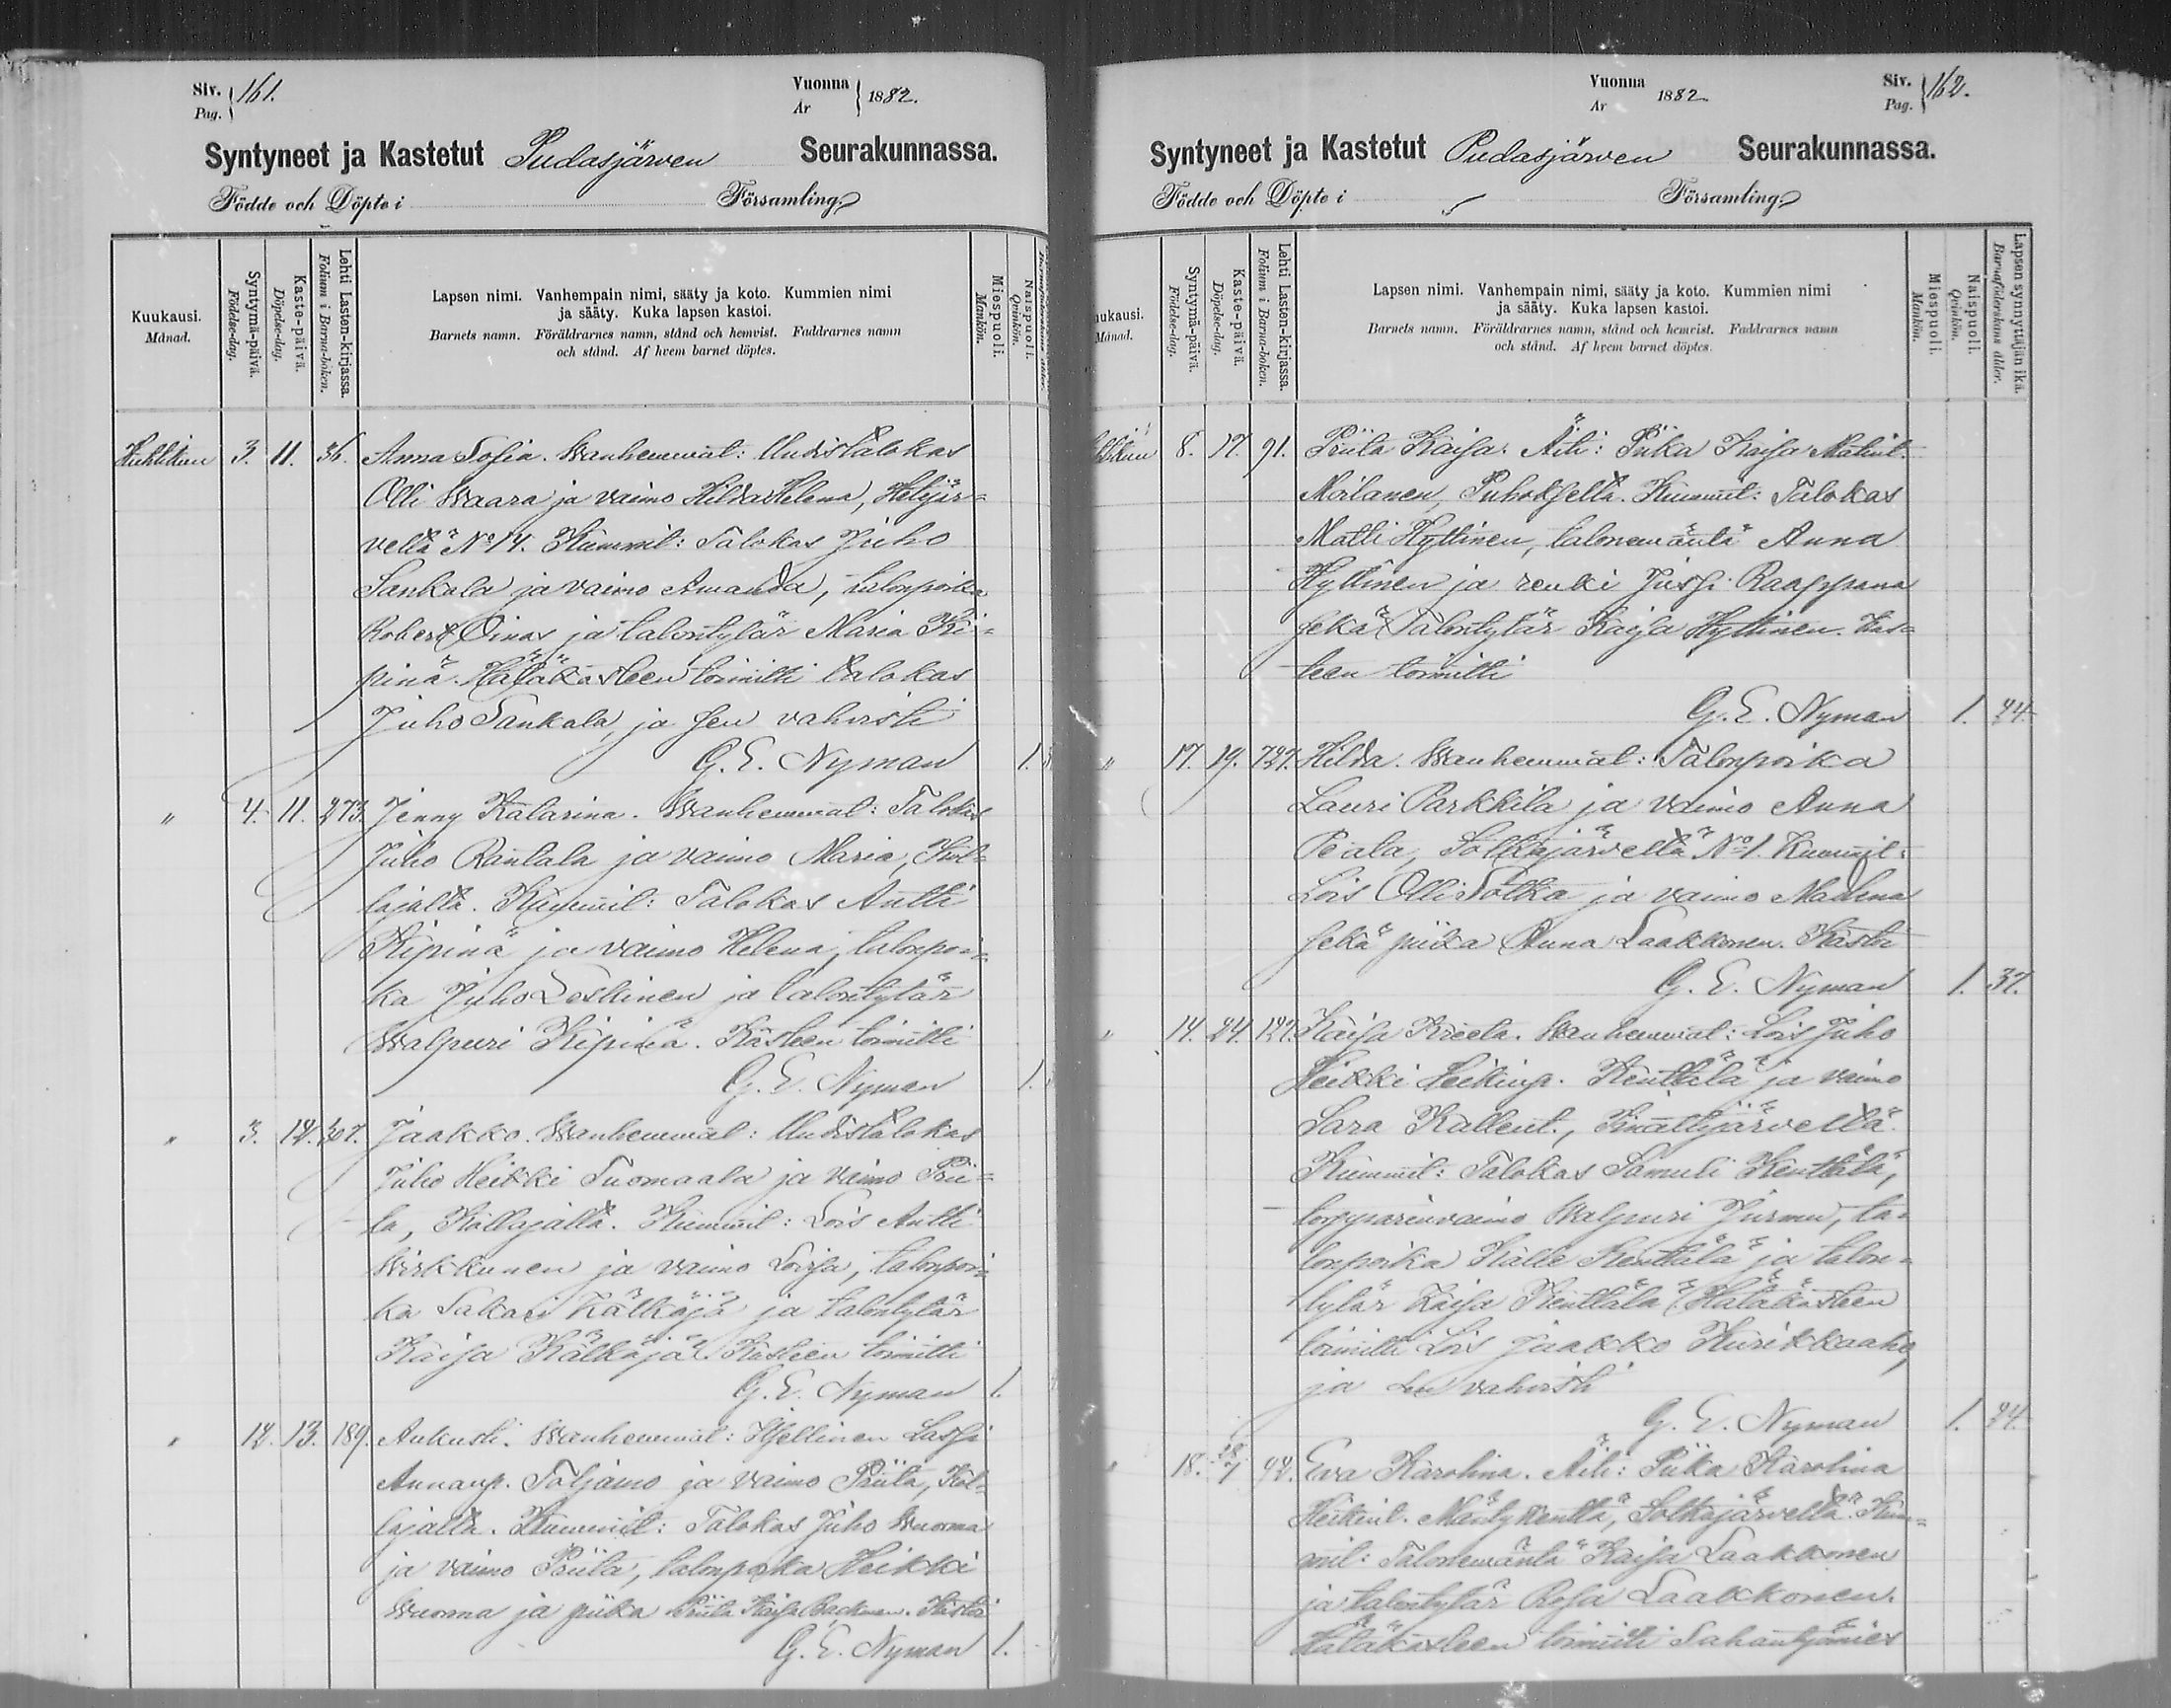 Siv. Pag. 161.
Vuonna Ar 1882.
Syntyneet ja Kastetut Pudasjärven Seurakunnassa.
Födde och Döpte i Församling
Kuukausi. Månad.
Syntymä-päivä. Födelse-dag.
Kaste-päivä. Döpelse-dag.
Lehti Lasten-kirjassa. Folium i Barna-boken.
Lapsen nimi. Vanhempain nimi, sääty ja koto. Kummien nimi
ja sääty. Kuka lapsen kastoi.
Barnets namn. Föräldrarnes namn, stånd och hemvist. Faddrarnes namn
och stånd. Af hvem barnet döptes.
Miespuoli. Mankön.
Naispuoli. Qvinkön.
Huhtikuu 3. 11. 36. Anna Sofia. Wanhemmat: Uudistalokas
Olli Waara ja vaimo Hilda Helena, Hetejär-
vellä No 14. Kummit: Talokas Juho
Sankala ja vaimo Amanda, talonpoika
Robert Oinas ja talontytär Maria Ki-
pinä. Hätäkasteen toimitti talokas
Juho Sankala, ja sen vahvisti
G. E. Nyman 1.
" 4. 11. 273. Jenny Katarina. Wanhemmat: Talokas
Juho Rantala ja vaimo Maria, Kol-
lajalta. Kummit: Talokas Antti
Kipinä ja vaimo Helena, talonpoi-
ka Juho Leskinen ja talontytär
Walpuri Kipinä. Kasteen toimitti
G. E. Nyman 1.
" 3. 12. 307. Jaakko. Wanhemmat: Uudistalokas
Juho Heikki Tuomaala ja vaimo Prii-
ta, Kollajalta. Kummit: Lois Antti
Wirkkunen ja vaimo Loisa, talonpoi-
ka Sakari Kälkäjä ja talontytär
Kaisa Kälkäjä. Kasteen toimitti
G. E. Nyman 1.
" 12. 13. 189. Aukusti. Wanhemmat: Itsellinen Lassi
Annanp. Taljamo ja vaimo Priita, Kol-
lajalta. Kummit: Talokas Juho Wuorma
ja vaimo Priita, talonpoika Heikki
Wuorma ja piika Priita Kaisa Backman. Kasti
G. E. Nyman 1.
Vuonna Ar 1882
Siv. Pag. 162.
Syntyneet ja Kastetut Pudasjärven Seurakunnassa.
Födde och Döpte i Församling
uukausi. Månad.
Syntymä-päivä. Födelse-dag.
Kaste-päivä. Döpelse-dag.
Lehti Lasten-kirjassa. Folium i Barna-boken.
Lapsen nimi. Vanhempain nimi, sääty ja koto. Kummien nimi
ja sääty. Kuka lapsen kastoi.
Barnets namn. Föräldrarnes namn, stånd och hemvist. Faddrarnes namn
och stånd. Af hvem barnet döptes.
Miespuoli. Mankön.
Naispuoli. Qvinkön.
Lapsen synnyttäjän ikä. Barnaföderskans ålder.
8. 17. 91. Priita Kaisa. Äiti: Piika Kaisa Matint.
Moilanen, Puhokselta. Kummit: Talokas
Matti Hyttinen, talonemäntä Anna
Hyttinen ja renki Jussi Raappana
sekä talontytär Kaisa Hyttinen. Kas-
teen toimitti
G. E. Nyman 1. 24.
" 17. 19. 727. Hilda. Wanhemmat: Talonpoika
Lauri Parkkila ja vaimo Anna
Peata, Sotkajärvellä No 1. Kummit:
Lois Olli Sotka ja vaimo Madlena
sekä piika Anna Laakkonen. Kasti
G. E. Nyman 1. 37.
" 14. 24. 127. Kaisa Kreeta. Wanhemmat: Lois Juho
Heikki Heikinp. Kenttälä ja vaimo
Sara Kallent., Sinättijärvellä.
Kummit: Talokas Samuli Kenttälä,
torpparinvaimo Walpuri Jurmu, ta-
lonpoika Kalle Kenttälä ja talon-
tytär Kaisa Kenttälä. Hätäkasteen
toimitti Lois Jaakko Kurikkaaho,
ja sen vahvisti
G. E. Nyman 1. 24.
" 18. 28/7 42. Eva Karolina. Äiti: Piika Karolina
Heikint. Mäntykenttä, Sotkajärvellä. Kum-
mit: Talonemäntä Kaisa Laakkonen
ja talontytär Rosa Laakkonen.
Hätäkasteen toimitti Sahantyömies